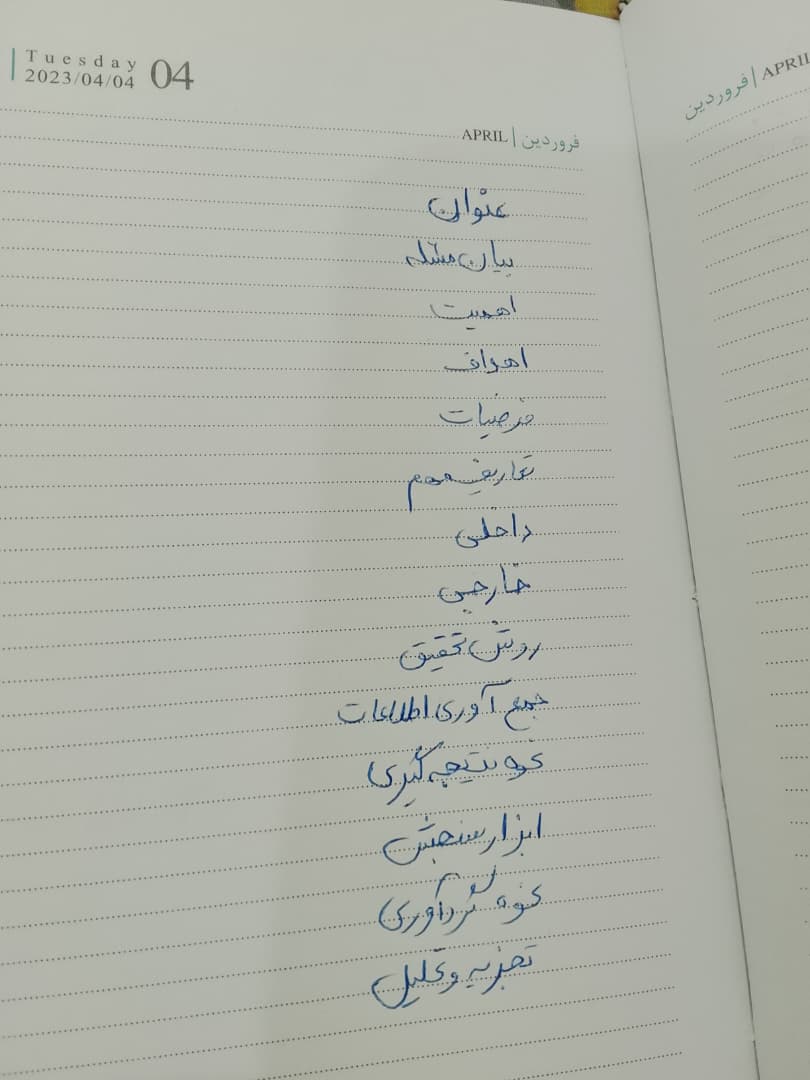 Tuesday
2023/04/04 04
APRIL | فروردین
APRIL | فروردین
عنوان
بیان مسئله
اهمیت
اهداف
فرضیات
تعاریف مهم
داخلی
خارجی
روش تحقیق
جمع آوری اطلاعات
نحوه نتیجه گیری
ابزار سنجش
نحوه گردآوری
تجزیه و تحلیل